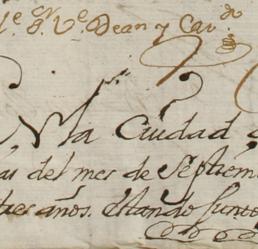 Ve. Dean y Cavdo
En la Ciudad
dias del mes de Septiem
tres años. estando Junto